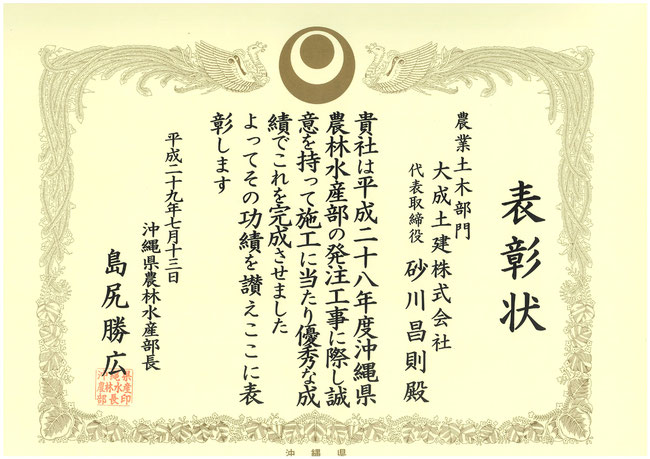 表彰状
農業土木部門
大成土建株式会社
代表取締役 砂川昌則 殿
貴社は平成二十八年度沖縄県
農林水産部の発注工事に際し誠
意を持って施工に当たり優秀な成
績でこれを完成させました
よってその功績を讃えここに表
彰します
平成二十九年七月十三日
沖縄県農林水産部長
島尻勝広
沖縄県農林水産部長印
沖縄県